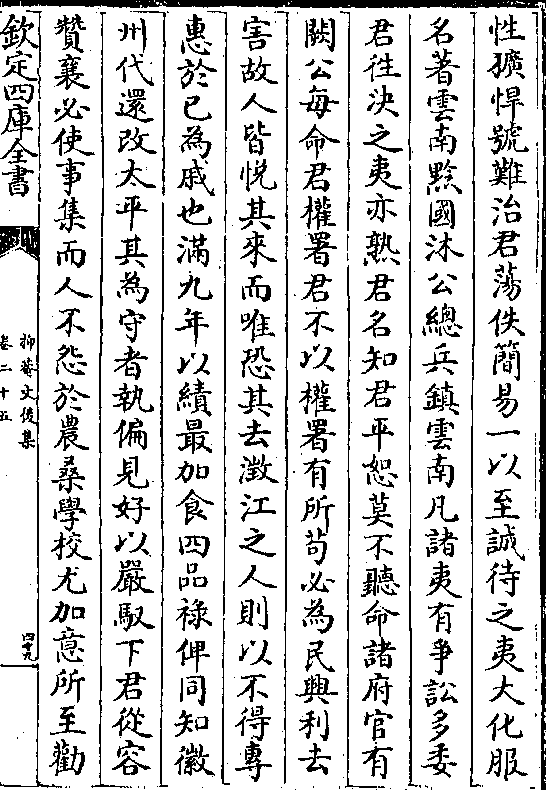 性獷悍號難治君蕩佚簡易一以至誠待之夷大化服
名著雲南黔國沐公總兵鎮雲南凡諸夷有爭訟多委
君往決之夷亦熟君名知君平恕莫不聽命諸府官有
闕公每命君權署君不以權署有所苟必為民興利去
害故人皆悅其來而唯恐其去澂江之人則以不得專
惠於已為戚也滿九年以績最加食四品祿俾同知徽
州代還改太平其為守者執偏見好以嚴馭下君從容
贊襄必使事集而人不怨於農桑學校尤加意所至勸
欽定四庫全書
抑菴文後集
卷二十五
四十九